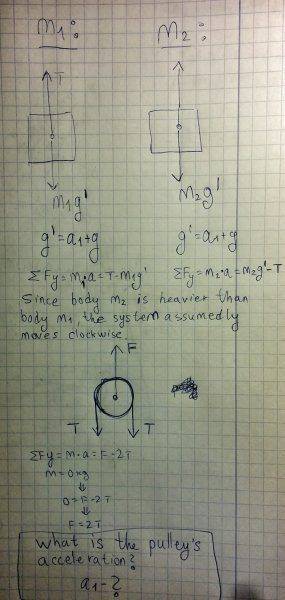 m₁:
m₂:
T
m₁g'
m₂g'
g'=a₁+g
g'=a₁+g
ΣFy=m₁·a=T-m₁g'
ΣFy=m₂·a=m₂g'-T
Since body m₂ is heavier than
body m₁, the system assumedly
moves clockwise.
F
T
T
ΣFy=m·a=F-2T
m=0kg
⇓
0=F-2T
⇓
F=2T
what is the pulley's
acceleration?
a₁-?